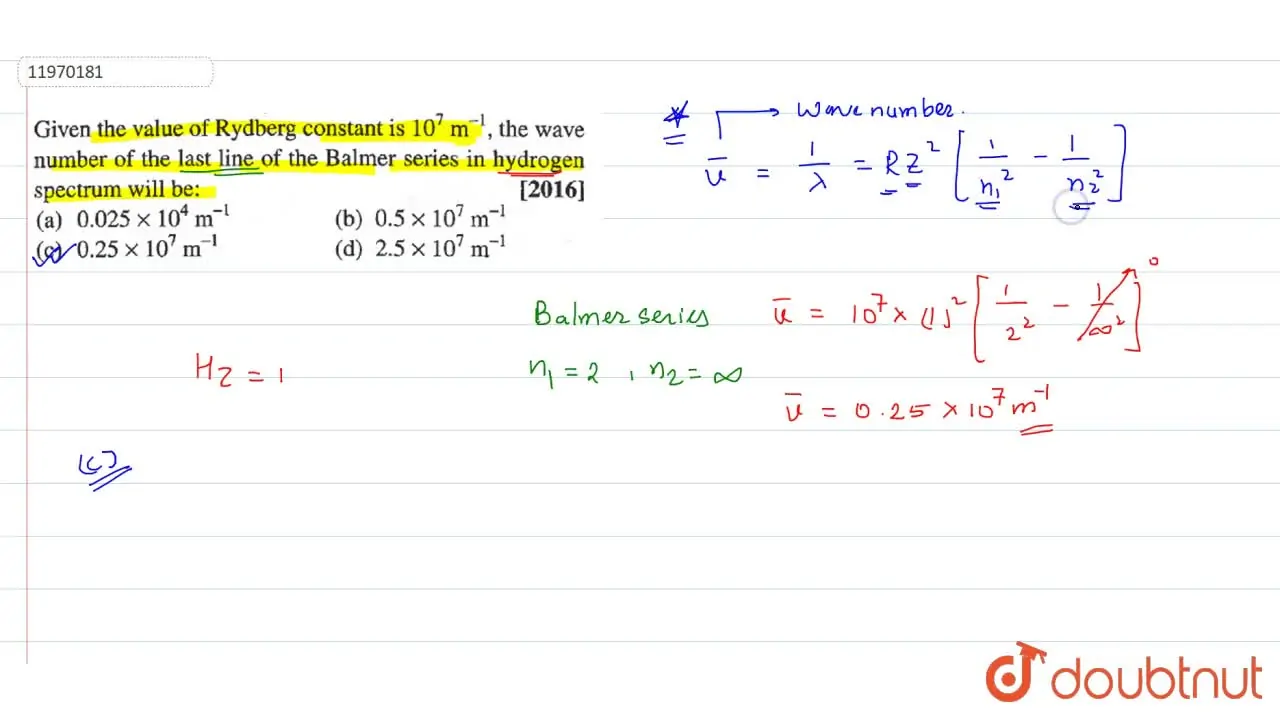 11970181
Given the value of Rydberg constant is 10⁷ m⁻¹, the wave
number of the last line of the Balmer series in hydrogen
spectrum will be: [2016]
(a) 0.025 × 10⁴ m⁻¹ (b) 0.5 × 10⁷ m⁻¹
(c) 0.25 × 10⁷ m⁻¹ (d) 2.5 × 10⁷ m⁻¹
Wave number.
ν̅ = 1/λ = RZ² [1/n₁² − 1/n₂²]
Balmer series
n₁ = 2 , n₂ = ∞
H Z = 1
ν̅ = 10⁷ × (1)² [1/2² − 1/∞²] 0
ν̅ = 0.25 × 10⁷ m⁻¹
(C)
doubtnut